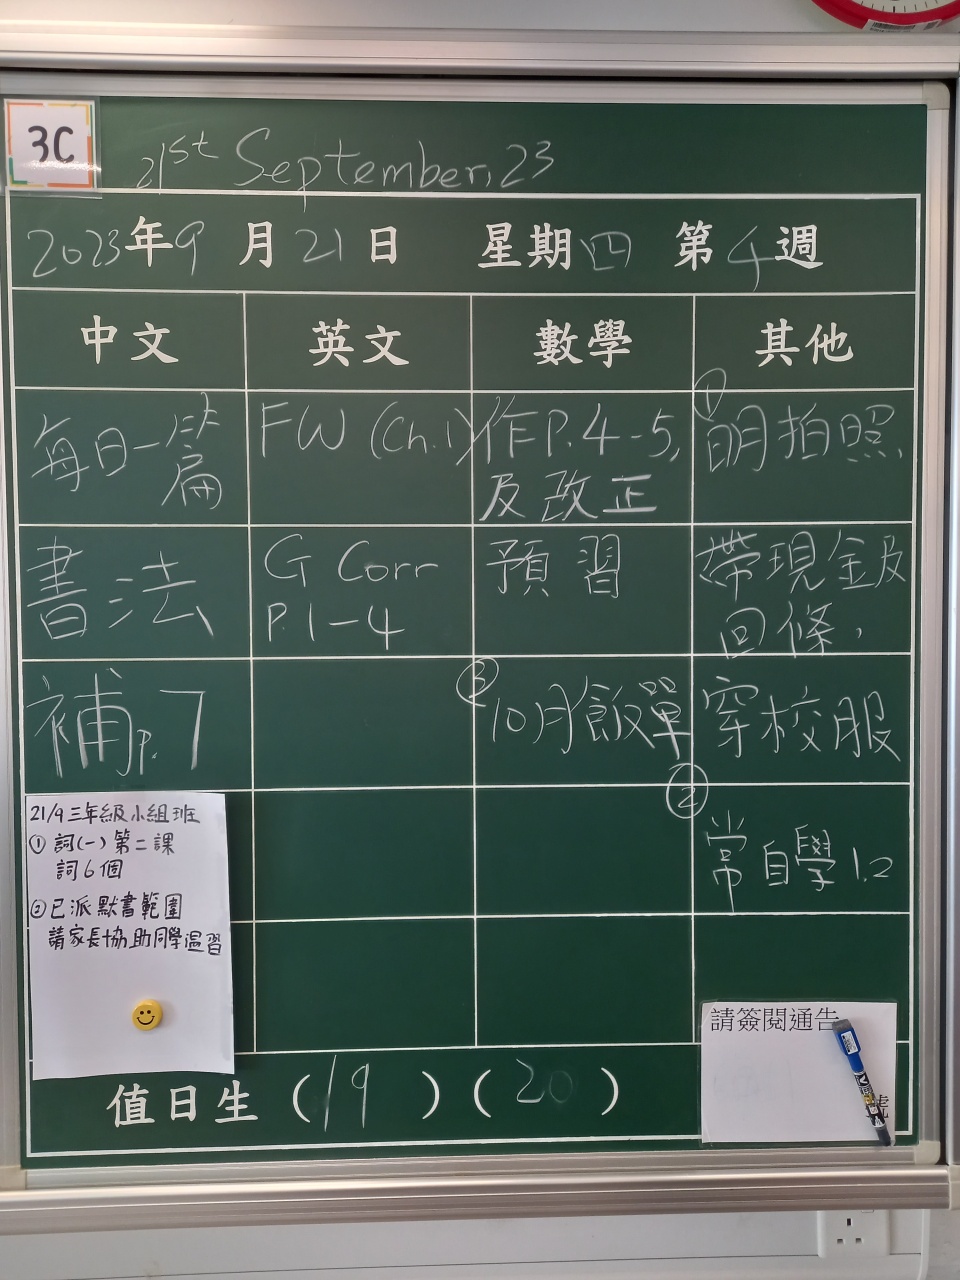 3C
21st September, 23
2023年9月21日 星期四 第4週
中文 英文 數學 其他
每日一篇
FW (Ch.1)
作P.4-5,
及改正
① 明拍照
書法
G Corr
P.1-4
預習
帶現金及
回條,
補P.7
③ 10月飯單
穿校服
② 常自學1.2
21/9三年級小組班
① 詞(一)第二課
詞6個
② 已派默書範圍
請家長協助同學溫習
請簽閱通告
號
值日生 (19) (20)